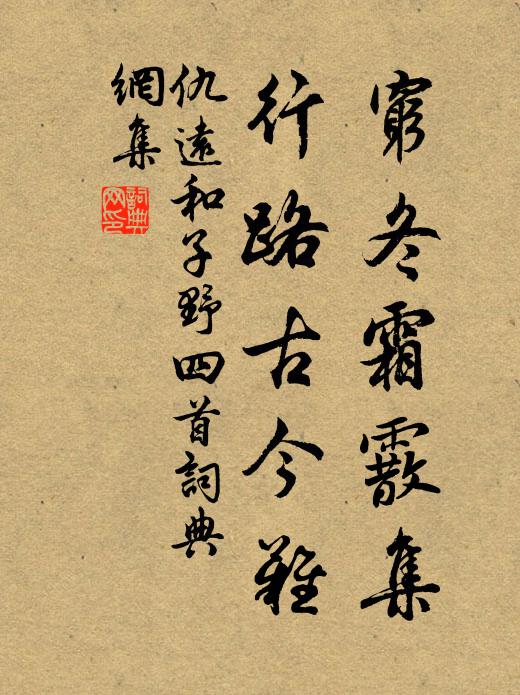 窮冬霜霰集
行路古今難
仇遠和子野四首詞典
網集
詞典
网印